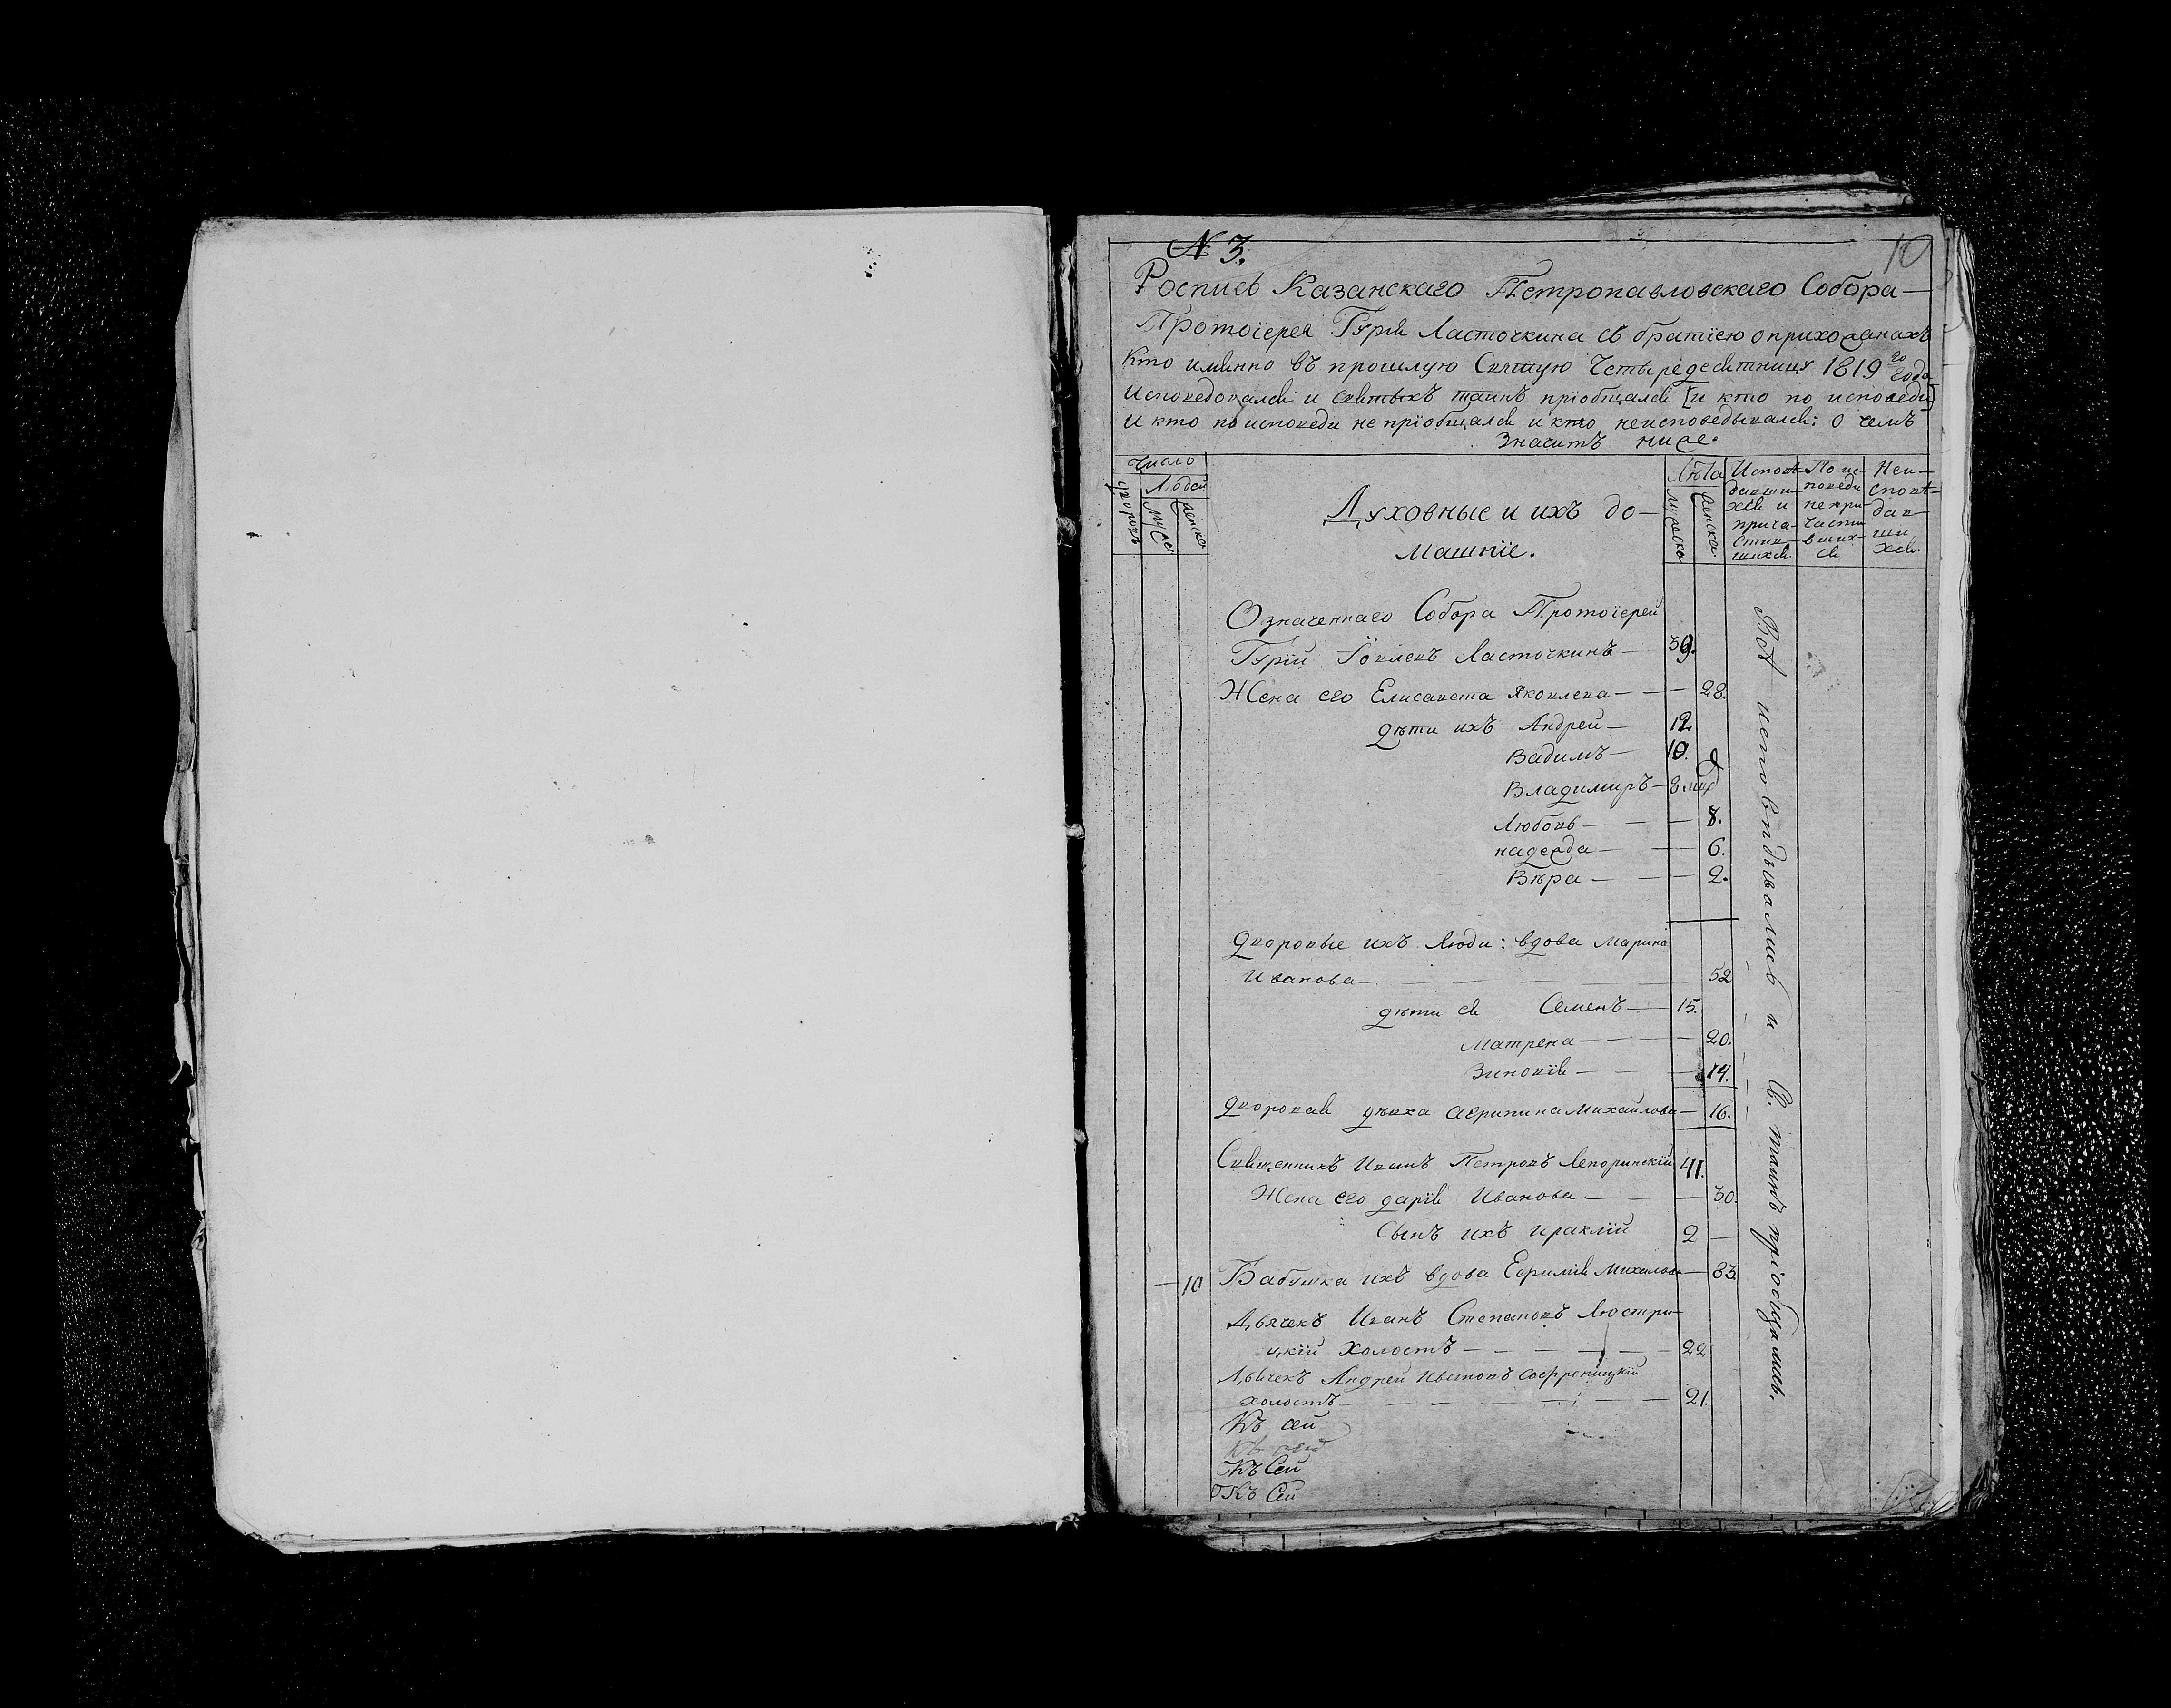 N 3.
10
Роспись Казанскаго Петропавловскаго Собора
Протоіерея Гурія Ласточкина съ братіею о прихожанахъ
кто имянно въ прошлую Святую Четыредесятницу 1819 го года
исповедовался и святыхъ таинъ пріобщался [и кто по исповеди]
и кто по исповеди не пріобщался и кто неисповедывался: о чемъ
значитъ ниже.
Число
Людей
дворовъ
мужес
женска
Духовные и ихъ до-
машніе.
Лѣта
мужеска
женска.
Исповѣ-
давши-
хся и
прича-
стив-
шихся.
По ис-
поведи
не при-
части
вших-
ся
Неи-
сповѣ-
дав-
ши
хся.
Означеннаго Собора Протоіерей
Гурій Іовлевъ Ласточкинъ 39.
Жена его Елисавета Яковлева 28.
дѣти ихъ Андрей 12
Вадимъ 10.
Владимиръ
Любовь 8.
надежда 6.
Вѣра 2.
Дворовые ихъ люди: вдова Марина
Иванова 52
дѣти ея Семенъ 15.
Матрена 20.
Зиновія 14.
Дворовая дѣвка Агрипина Михайлова 16.
Священникъ Иванъ Петровъ Лепоринскій 41.
Жена его дарія Иванова 30.
Сынъ ихъ ираклій 2
10 Бабушка ихъ вдова Ефимія Михайлова 83
Дьячекъ Иванъ Степановъ Люстри-
цкій холостъ 22
Дьячекъ Андрей Ивановъ
холостъ 21.
Къ сей
Къ Сей
Къ Сей
Все исповѣдывались и Св. таинъ пріобщались.